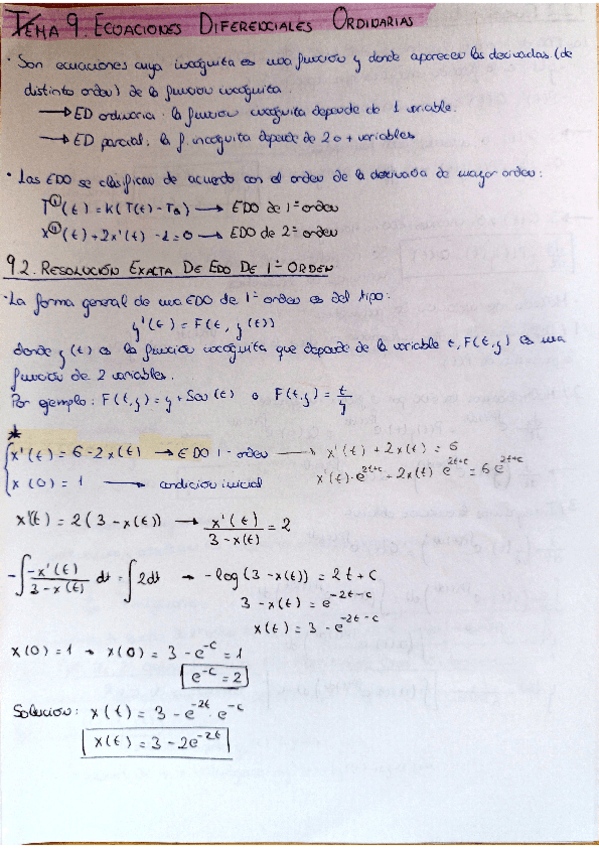 TEMA 9. ECUACIONES DIFERENCIALES ORDINARIAS
· Son ecuaciones cuya incógnita es una función y donde aparecen las derivadas (de
distinto orden) de la función incógnita.
→ ED ordinaria: la función incógnita depende de 1 variable.
→ ED parcial: la f. incógnita depende de 2 o + variables
· Las EDO se clasifican de acuerdo con el orden de la derivada de mayor orden:
T'(t) = K(T(t) - Ta) → EDO de 1º orden
x''(t) + 2x'(t) - 1 = 0 → EDO de 2º orden
9.2. RESOLUCIÓN EXACTA DE EDO DE 1º ORDEN
· La forma general de una EDO de 1º orden es del tipo:
y'(t) = F(t, y(t))
donde y(t) es la función incógnita que depende de la variable t, F(t,y) es una
función de 2 variables.
Por ejemplo: F(t,y) = y + Sen(t) o F(t,y) = t/y
*
x'(t) = 6 - 2x(t) → EDO 1º orden → x'(t) + 2x(t) = 6
x(0) = 1 → condición inicial x'(t)·e^(2t+c) + 2x(t) e^(2t+c) = 6e^(2t+c)
x'(t) = 2(3 - x(t)) → x'(t)/(3 - x(t)) = 2
-∫ -x'(t)/(3 - x(t)) dt = ∫ 2dt → -log(3 - x(t)) = 2t + c
3 - x(t) = e^(-2t-c)
x(t) = 3 - e^(-2t-c)
x(0) = 1 → x(0) = 3 - e^(-c) = 1
e^(-c) = 2
Solución: x(t) = 3 - e^(-2t) · e^(-c)
x(t) = 3 - 2e^(-2t)